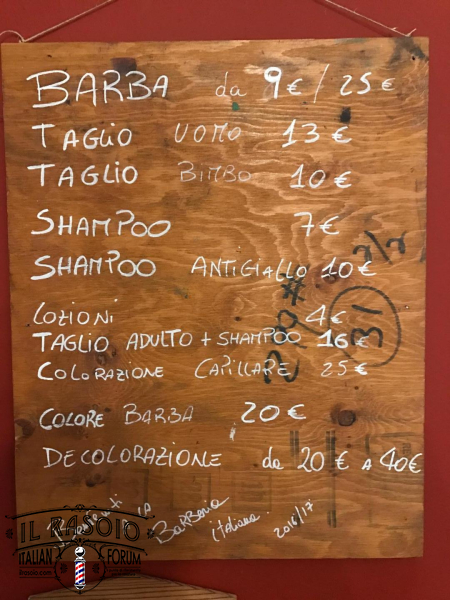 BARBA da 9€ / 25€
TAGLIO UOMO 13€
TAGLIO BIMBO 10€
SHAMPOO 7€
SHAMPOO ANTIGIALLO 10€
LOZIONI 4€
TAGLIO ADULTO + SHAMPOO 16€
COLORAZIONE CAPILLARE 25€
COLORE BARBA 20€
DECOLORAZIONE da 20€ A 40€
LA BARBERIA italiana 2016/17
31
IL RASOIO
ITALIAN FORUM